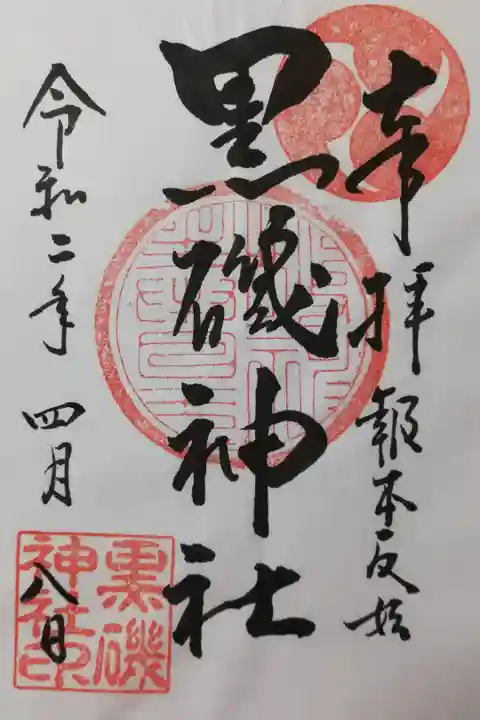 奉拝
報本反始
黒磯神社
令和二年
四月
八日
黒磯
神社印